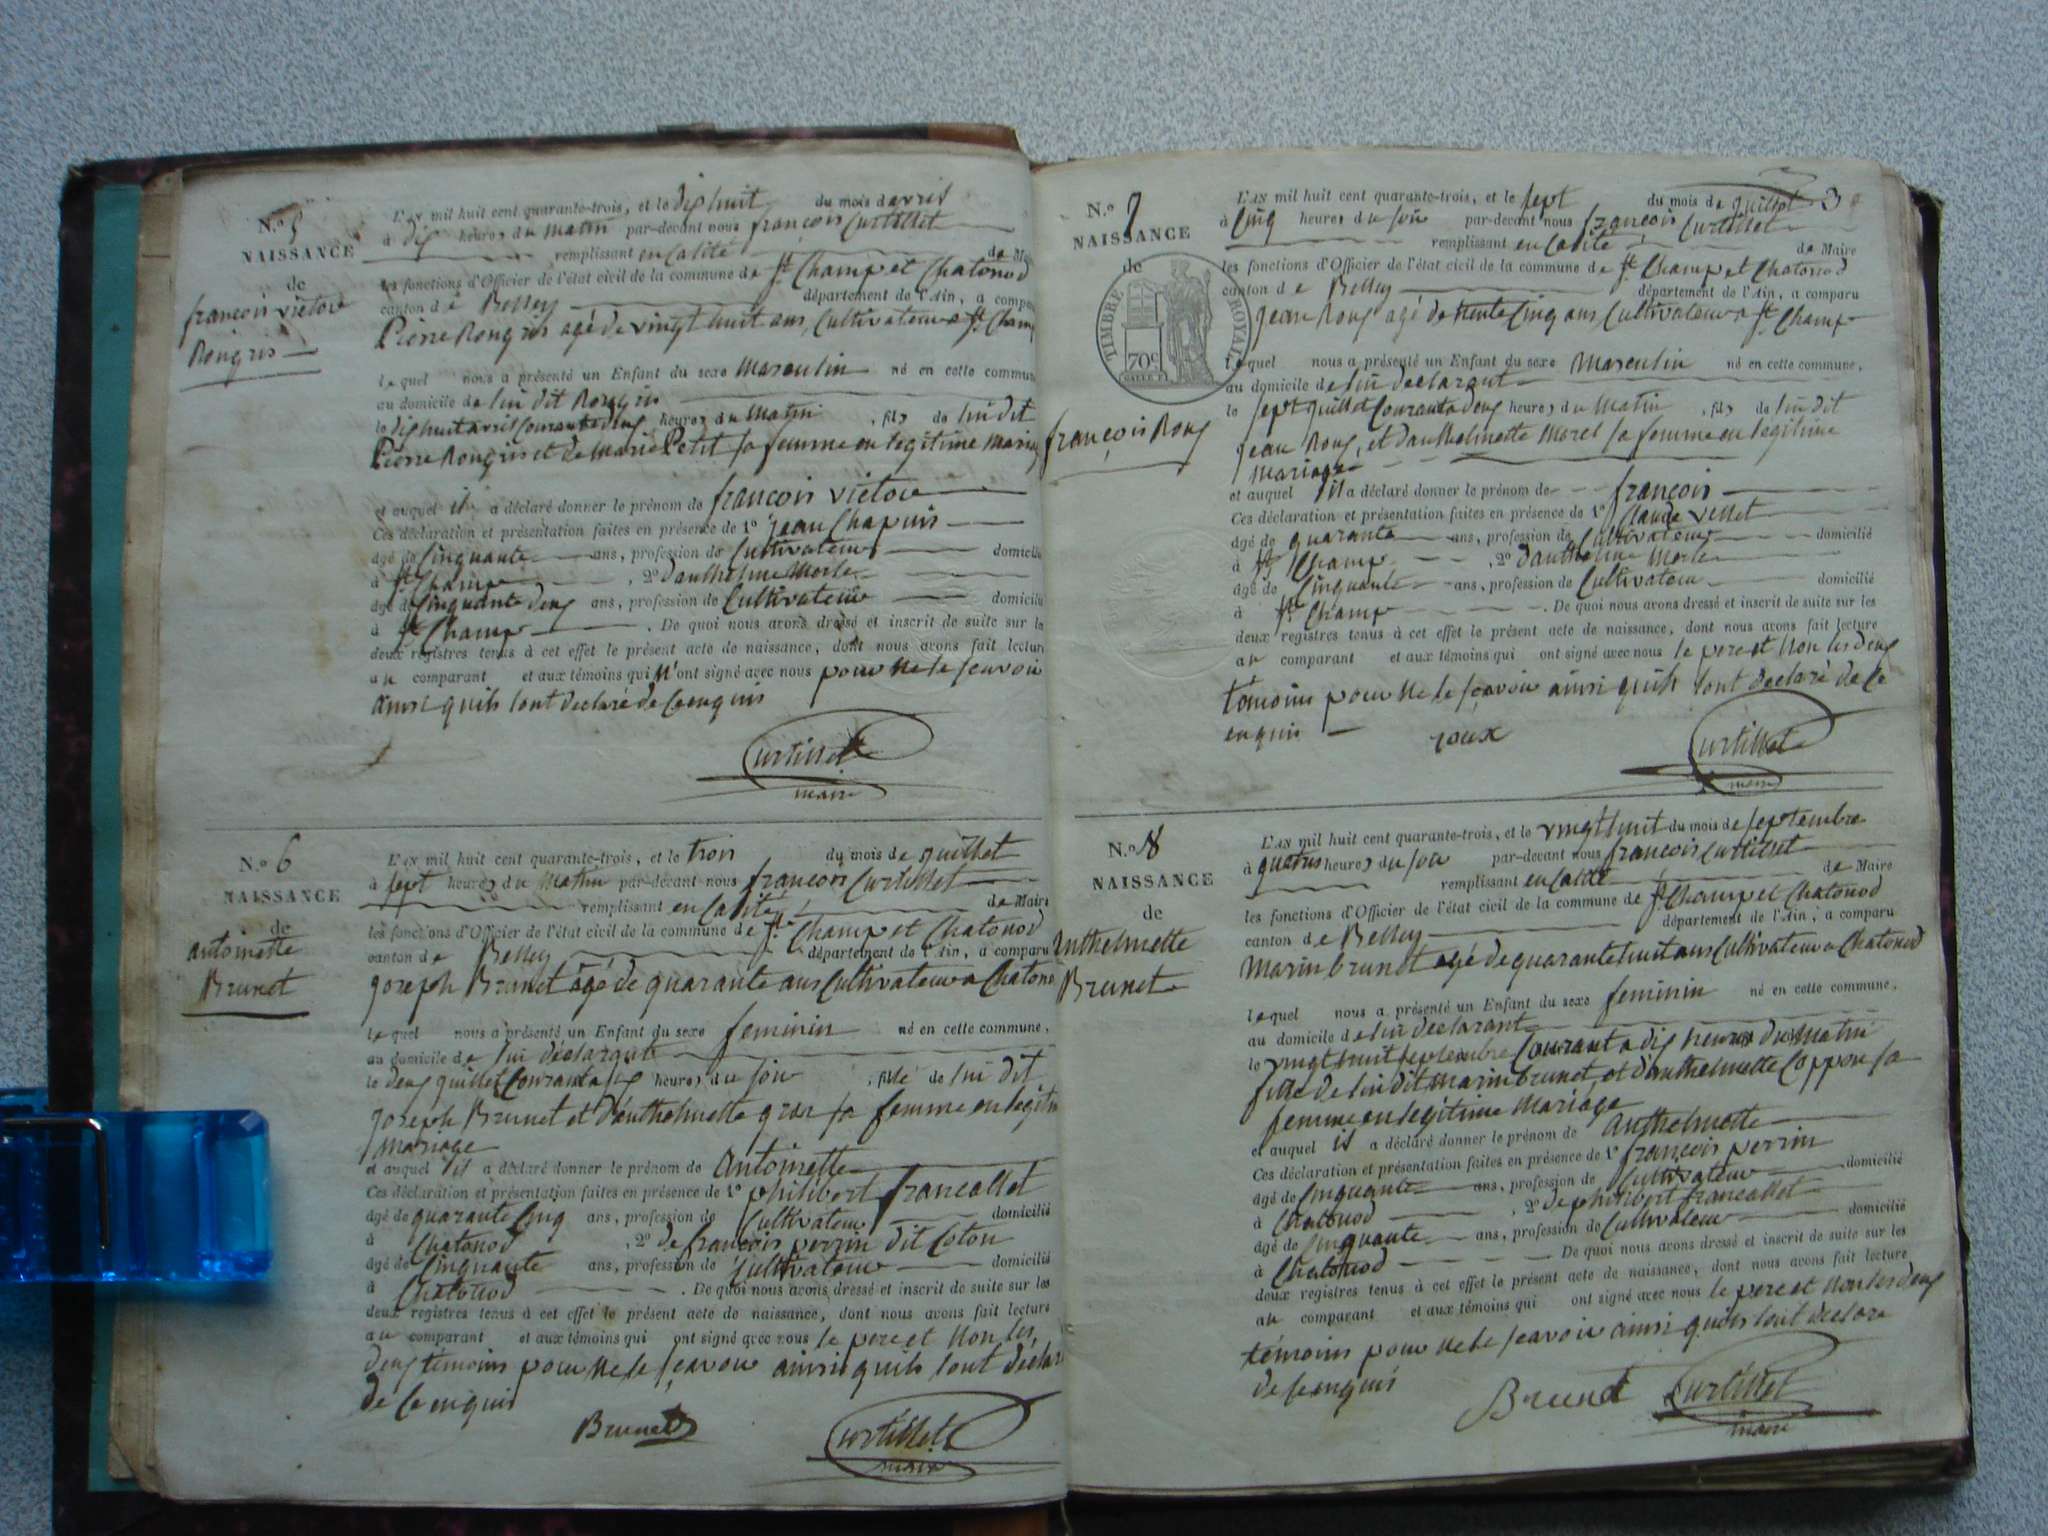 N.º 5
NAISSANCE
de
françois victor
Rougris
L'AN mil huit cent quarante-trois, et le dix huit du mois d avril
à dix heures du matin par-devant nous françois Curtillet
remplissant en calité de Maire
les fonctions d'Officier de l'état civil de la commune de St Champ et Chatonod
canton de Belley département de l'Ain, a comparu
Pierre Rougris agé de vingt huit ans, Cultivateur a St Champ
lequel nous a présenté un Enfant du sexe Masculin né en cette commune
au domicile de lui dit Rougris
le dix huit avril courant a deux heures du Matin, fils de lui dit
Pierre Rougris et de Marie Petit sa femme en legitime mariage
et auquel il a déclaré donner le prénom de françois victor
Ces déclaration et présentation faites en présence de 1º Jean Chapuis
âgé de Cinquante ans, profession de Cultivateur domicilié
à St Champ, 2º d'anthelme Morle
âgé de Cinquante deux ans, profession de Cultivateur domicilié
à St Champ. De quoi nous avons dressé et inscrit de suite sur les
deux registres tenus à cet effet le présent acte de naissance, dont nous avons fait lecture
au comparant et aux témoins qui n'ont signé avec nous pour ne le scavoir
ainsi quils l'ont declaré de ce enquis
Curtillet
maire
N.º 6
NAISSANCE
de
antoinette
Brunet
L'AN mil huit cent quarante-trois, et le trois du mois de juillet
à sept heures du Matin par-devant nous françois Curtillet
remplissant en calité de Maire
les fonctions d'Officier de l'état civil de la commune de St Champ et Chatonod
canton de Belley département de l'Ain, a comparu
joseph Brunet agé de quarante ans Cultivateur a Chatonod
lequel nous a présenté un Enfant du sexe feminin né en cette commune,
au domicile de lui déclarant
le deux juillet Courant a six heures du soir, fille de lui dit
joseph Brunet et d'anthelmette gros sa femme en legitime
mariage
et auquel il a déclaré donner le prénom de antoinette
Ces déclaration et présentation faites en présence de 1º philibert francallet
âgé de quarante Cinq ans, profession de Cultivateur domicilié
à Chatonod, 2º de françois perrin dit Coton
âgé de Cinquante ans, profession de Cultivateur domicilié
à Chatonod. De quoi nous avons dressé et inscrit de suite sur les
deux registres tenus à cet effet le présent acte de naissance, dont nous avons fait lecture
au comparant et aux témoins qui ont signé avec nous le pere et Non les
deux témoins pour ne le scavoir ainsi quils l'ont déclaré
de ce enquis
Brunet Curtillet
maire
3
N.º 7
NAISSANCE
de
TIMBRE ROYAL
70 c
françois Roux
L'AN mil huit cent quarante-trois, et le sept du mois de juillet
à Cinq heures du soir par-devant nous françois Curtillet
remplissant en calité de Maire
les fonctions d'Officier de l'état civil de la commune de St Champ et Chatonod
canton de Belley département de l'Ain, a comparu
Jean Roux agé de trente Cinq ans Cultivateur a St Champ
lequel nous a présenté un Enfant du sexe Masculin né en cette commune,
au domicile de lui declarant
le sept juillet Courant a deux heures du Matin, fils de lui dit
Jean Roux, et d'anthelmette Morel sa femme en legitime
Mariage
et auquel il a déclaré donner le prénom de françois
Ces déclaration et présentation faites en présence de 1º Claude vellet
âgé de quarante ans, profession de Cultivateur domicilié
à St Champ, 2º d'anthelme Morle
âgé de Cinquante ans, profession de Cultivateur domicilié
à St Champ. De quoi nous avons dressé et inscrit de suite sur les
deux registres tenus à cet effet le présent acte de naissance, dont nous avons fait lecture
au comparant et aux témoins qui ont signé avec nous le pere et Non les deux
témoins pour ne le scavoir ainsi quils l'ont declaré de ce
enquis
roux Curtillet
maire
N.º 8
NAISSANCE
de
Anthelmette
Brunet
L'AN mil huit cent quarante-trois, et le vingt huit du mois de septembre
à quatres heures du soir par-devant nous françois Curtillet
remplissant en calité de Maire
les fonctions d'Officier de l'état civil de la commune de St Champ et Chatonod
canton de Belley département de l'Ain, a comparu
Marin brunet agé de quarante huit ans Cultivateur a Chatonod
lequel nous a présenté un Enfant du sexe feminin né en cette commune,
au domicile de lui declarant
le vingt huit septembre Courant a dix heures du Matin
fille de lui dit Marin brunet, et d'anthelmette Coppon sa
femme en legitime Mariage
et auquel il a déclaré donner le prénom de anthelmette
Ces déclaration et présentation faites en présence de 1º françois perrin
âgé de Cinquante ans, profession de Cultivateur domicilié
à Chatonod, 2º de philibert francallet
âgé de Cinquante ans, profession de Cultivateur domicilié
à Chatonod. De quoi nous avons dressé et inscrit de suite sur les
deux registres tenus à cet effet le présent acte de naissance, dont nous avons fait lecture
au comparant et aux témoins qui ont signé avec nous le pere et Non les deux
témoins pour ne le scavoir ainsi quils l'ont declaré
de ce enquis
Brunet Curtillet
maire